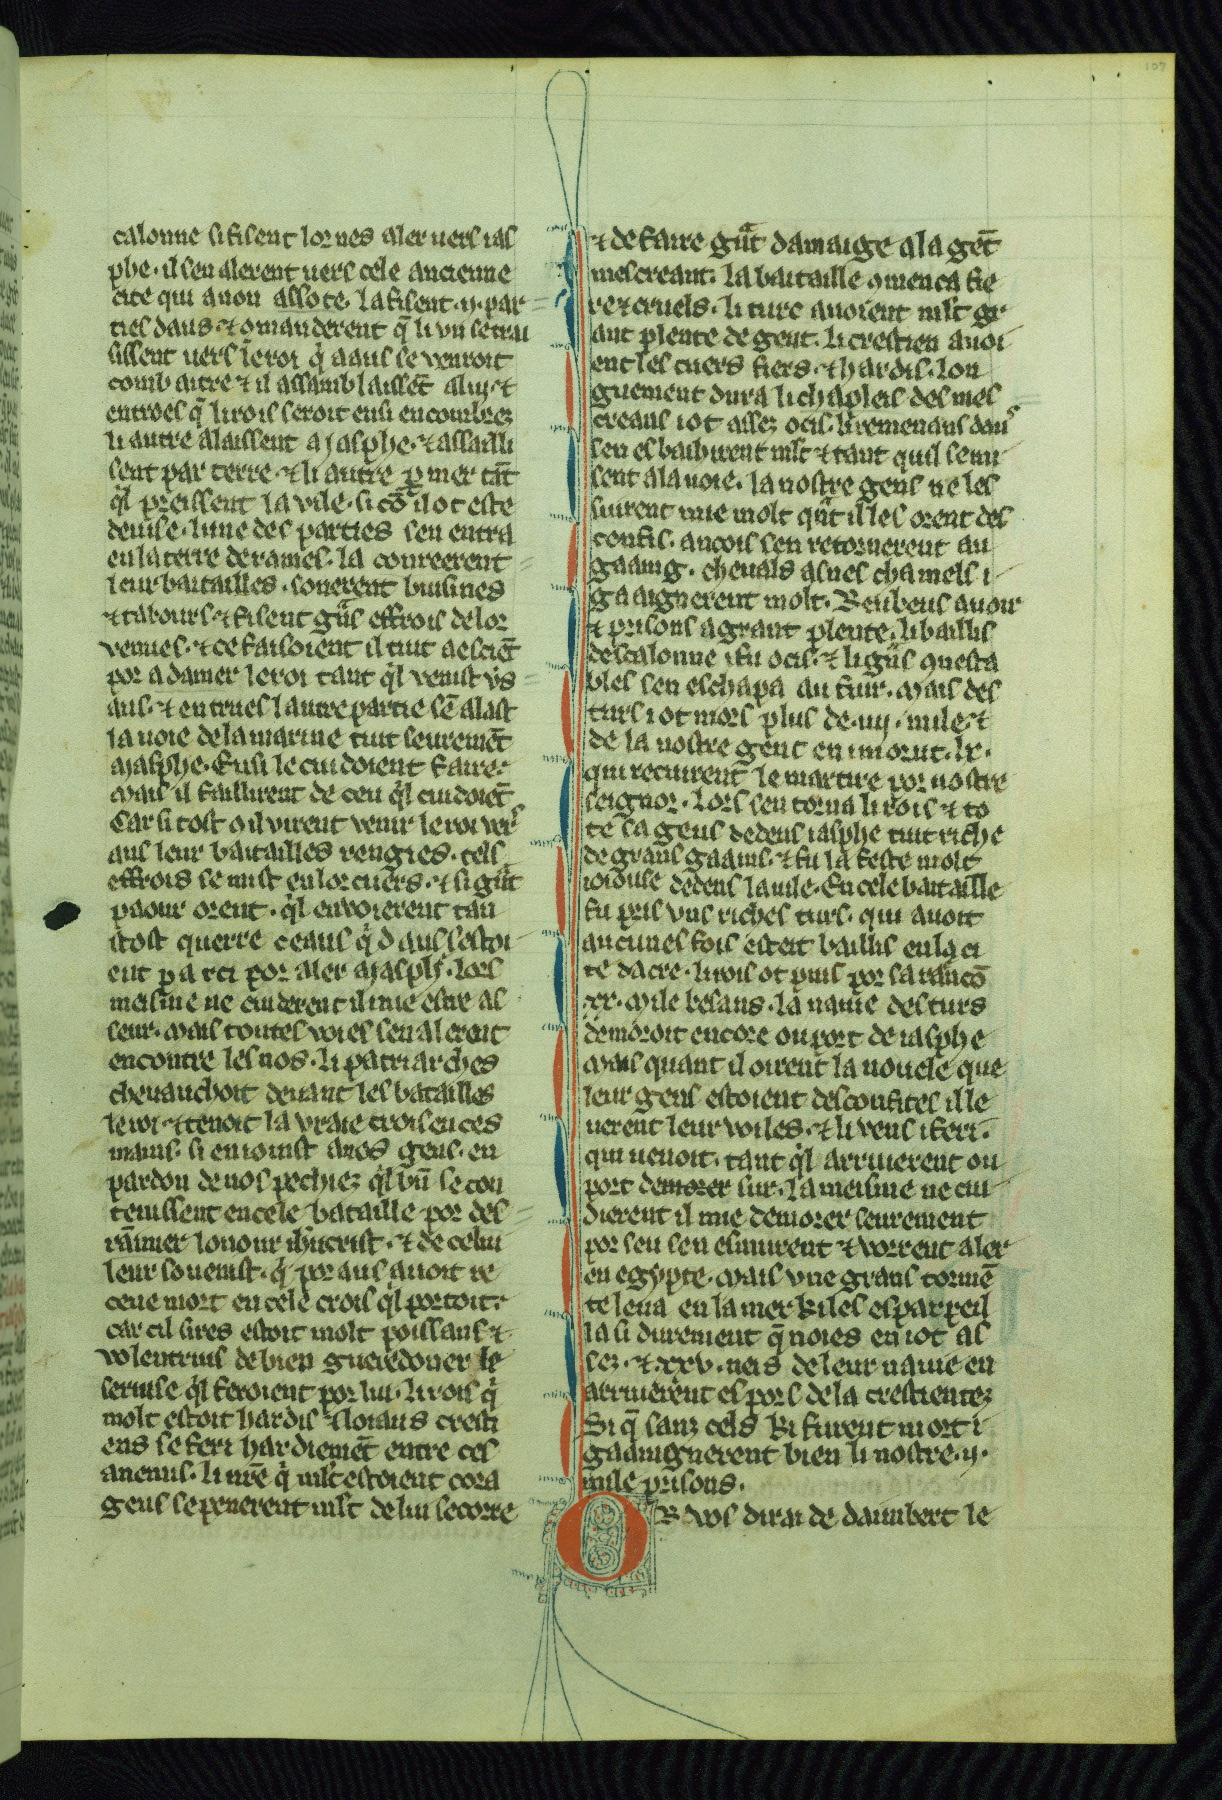 calonne si fisent lor nes aler vers ias
phe. il sen alerent uers cele ancienne
cite qui a non assote. la fisent .ij. par
ties daus. ⁊ 9manderent q̄ li vn se trai
sissent uers le roi q̇ a aus se venroit
combatre ⁊ il assamblaissēt a lui. ⁊
entroes q̄ li rois seroit ensi encombrez
li autre alaissent a iasphe. ⁊ assailli
sent par terre. ⁊ li autre ꝑ mer tāt
q̇l preissent la vile. si cō il ot este
deuise. lune des parties sen entra
en la terre de rames. la conreerent
leur batailles. sonerent buisines
⁊ tabours ⁊ fisent gͣns effrois de lor
venues. ⁊ ce faisoient il tuit a esciēt
por adamer le roi tant q̇l venist vs̄
aus. ⁊ entrues lautre partie sē alast
la uoie de la marine tuit seuremēt
a iasphe. Ensi le cuidoient faire.
Mais il faillirent de ceu q̇l cuidoiēt
Car si tost 9 il virent venir le roi ver̄s
aus leur batailles rengies. tels
effrois se mist en lor cuers. ⁊ si gͣnt
paour orent. q̇l enuoierent tan
tost querre ceaus q̇ daus sestoi
ent parti por aler a iasph̄. Lors
meisme ne cuiderent il mie estre as
seur. Mais toutes voies sen alerent
encontre les nos. li patriarches
cheuauchoit deuant les batailles
le roi. ⁊ tenoit la vraie crois en ces
mains. si enioinst a nos gens. en
pardon de nos pechiez q̇l bn̄ se con
tenissent en cele bataille por des
rainier lonour ihucrist. ⁊ de celui
leur souenist. q̇ por aus auoit re
ceue mort en cele crois q̇l portoit.
car cil sires estoit molt poissans ⁊
volentruis de bien gueredoner le
seruise q̇l feroient por lui. li rois q̇
molt estoit hardis ⁊ loiaus cresti
ens se feri hardiemēt entre ces
anemis. li nr̄e q̇ ml̄t estoient cora
geus se penerent ml̄t de lui secorre
⁊ de faire gͣnt damaige a la gēt
mescreant. la bataille 9menca fie
re ⁊ cruels. li turc auoient ml̄t gr
ant plente de gent. li crestien auoi
ent les cuers fiers. ⁊ hardis. lon
guement dura li chapleis des mes
creans i ot assez ocis. li remenans daus
sen esbaihirent ml̄t ⁊ tant quil se mi
sent a la uoie. la nostre gens ne les
suirent mie molt qͣnt il les orent des
confis. ancois sen retornerent au
gaaing. cheuals asnes chamels i
gaaignerent molt. Reubeus auoir
⁊ prisons a grant plente. li baillis
descalonne i fu ocis. ⁊ li gͣns 9nesta
bles sen eschapa au fuir. Mais des
turs i ot mors plus de .iiij. mile. ⁊
de la nostre gent en i morut .lx.
qui recuirent le martire por nostre
seignor. Lors sen torna li rois ⁊ to
te sa gens dedens iasphe tuit riche
de grans gaains. ⁊ fu la feste molt
ioiouse dedens la uile. En cele bataille
fu pris vns riches turs. qui auoit
aucunes fois esteit baillis en la ci
te dacre. li rois ot puis por sa rancō
.xx. mile besans. la nauie des turs
demoroit encore ou port de iasphe
Mais quant il oirent la nouele que
leur gens estoient desconfites il le
uerent leur voiles. ⁊ li vens i feri.
qui uenoit. tant q̇l arriuerent ou
port demorer sur. la meisme ne cui
dierent il mie demorer seurement
por seu sen esmurent ⁊ vorrent aler
en egypte. Mais vne grans tormē
te leua en la mer ki les esparpeil
la si durement q̄ noies en i ot as
sez. ⁊ .xxv. neis de leur nauie en
arriuerent es pors de la crestientez
Si q̄ sanz cels ki furent mort i
gaaingnerent bien li nostre .ij.
mile prisons.
OR vos dirai de daimbert le